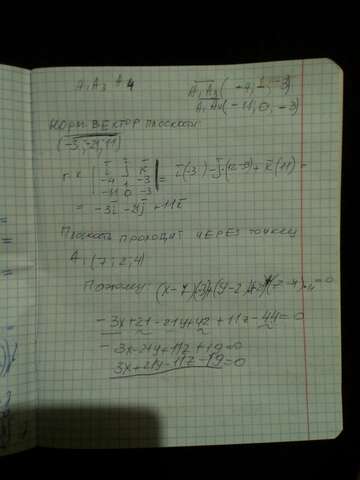 A₁ A₃ A₄
A₁A₃(-4, 1, -3)
A₁A₄(-11, 0, -3)
НОРМ. ВЕКТОР плоскости:
(-3, -21, 11)
i j k
-4 1 -3
-11 0 -3
= i(-3) - j·(12-33) + k(11) =
= -3i - 21j + 11k
Плоскость проходит через точку
A₁(7; 2; 4)
Поэтому:
-3x+21-21y+42+11z-44=0
-3x-21y+11z+19=0
3x+21y-11z-19=0